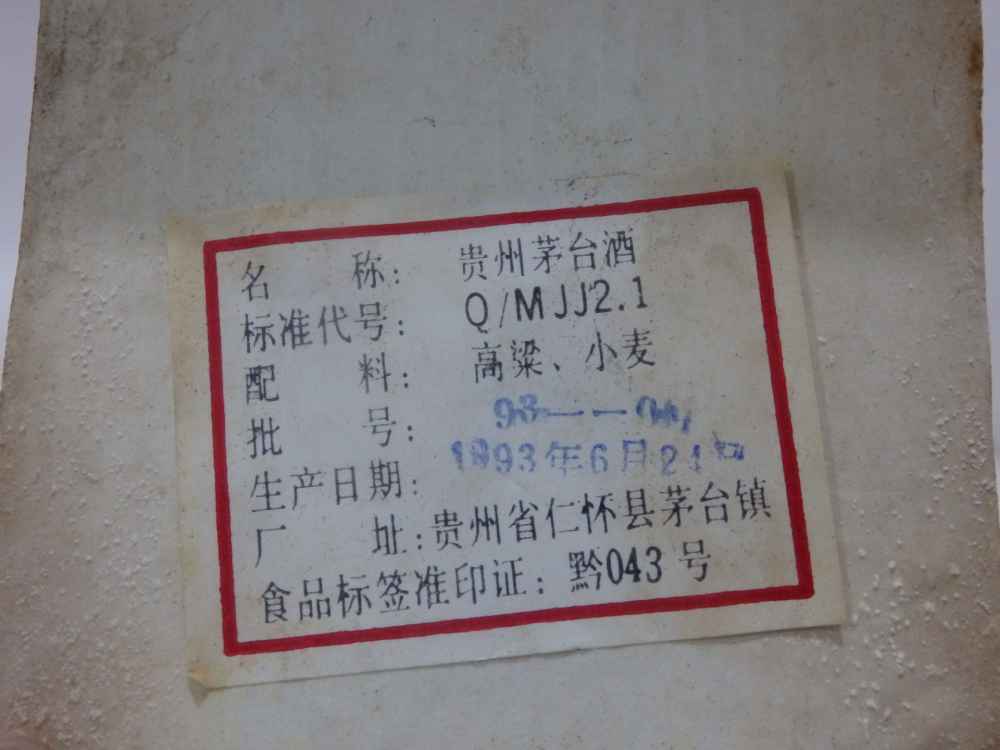 名 称: 贵州茅台酒
标准代号: Q/MJJ2.1
配 料: 高粱、小麦
批 号: 93——04
生产日期: 1993年6月21日
厂 址:贵州省仁怀县茅台镇
食品标签准印证: 黔043号